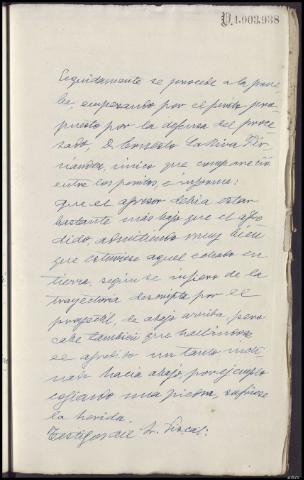 V.1.003.938
Seguidamente se procede a la prue-
ba, empezando por el perito pro-
puesto por la defensa del proce-
sado, D. Ernesto La Riva Fer-
nández, único que compareció
entre los peritos, e informa:
que el agresor debía estar
bastante más bajo que el agre-
dido, admitiendo muy bien
que estuviese aquel echado en
tierra, según se infiere de la
trayectoria descripta por el
proyectil, de abajo arriba, pero
cabe también que hallándose
el agredido un tanto incli-
nado hacia abajo por ejemplo
cogiendo una piedra, sufriese
la herida.
Testigos del Sr. Fiscal: